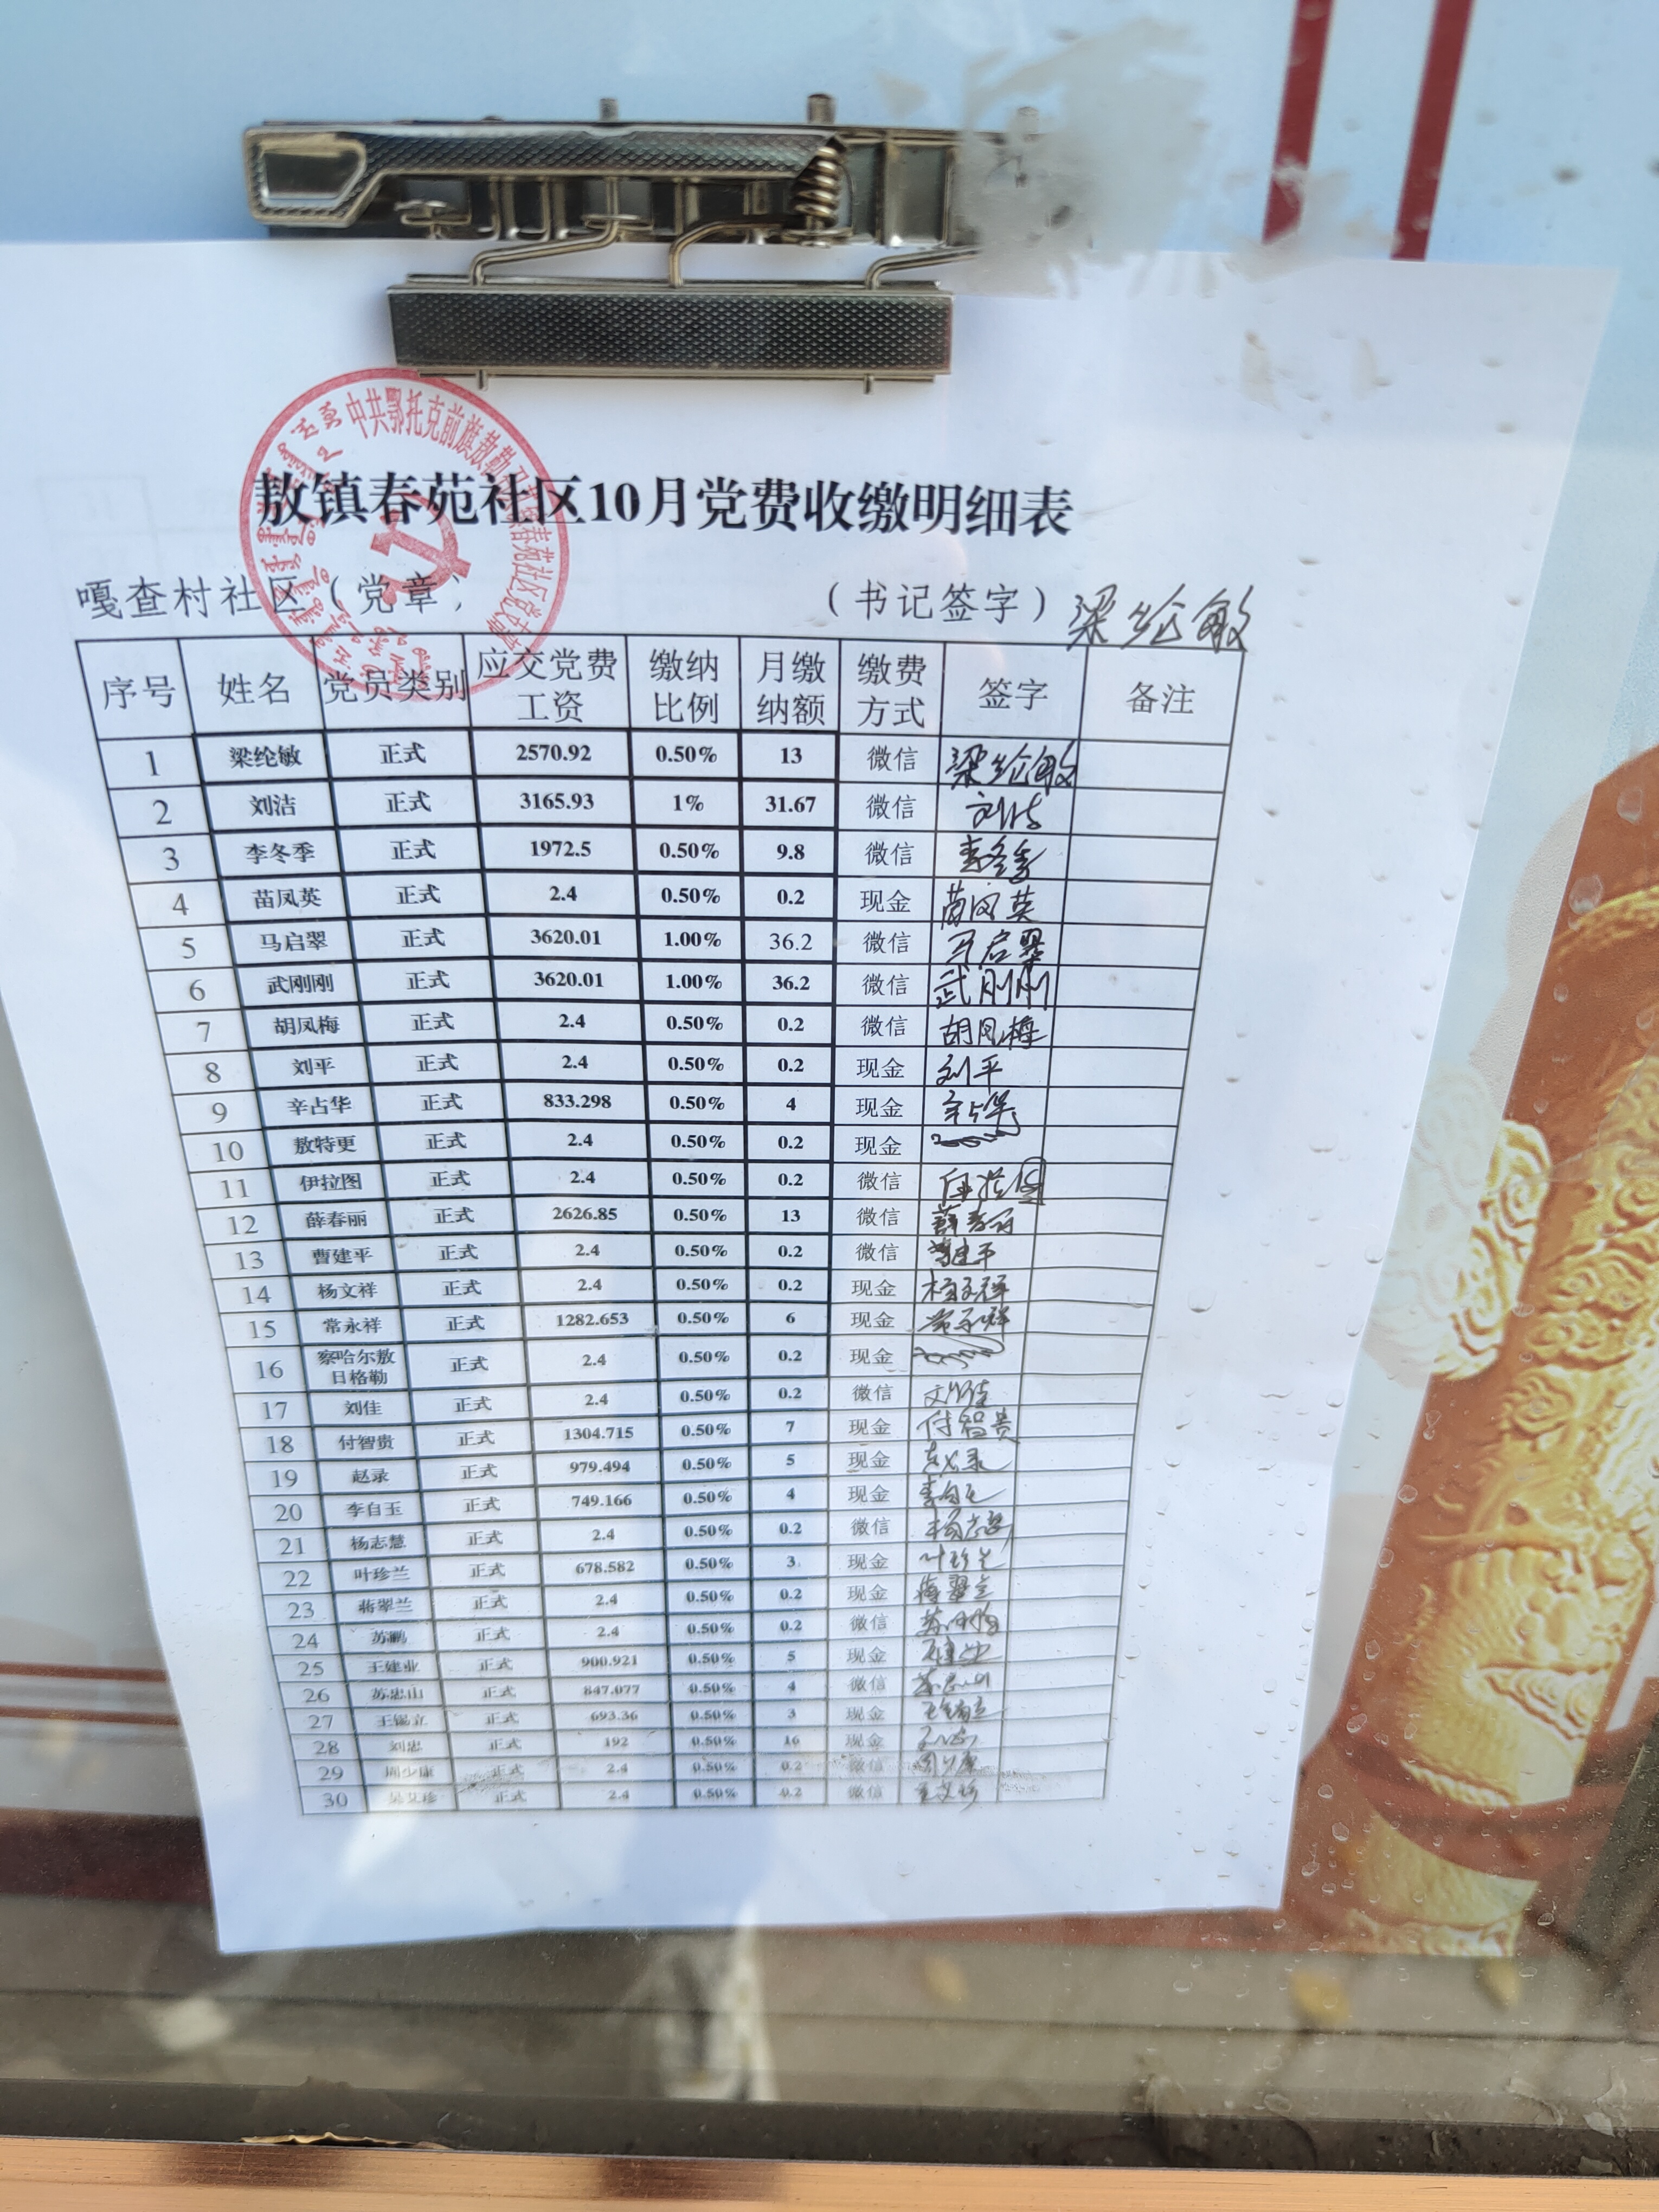 中共鄂托克前旗敖勒召其镇春苑社区党支部
敖镇春苑社区10月党费收缴明细表
嘎查村社区（党章） （书记签字）梁纶敏
序号 姓名 党员类别 应交党费工资 缴纳比例 月缴纳额 缴费方式 签字 备注
1 梁纶敏 正式 2570.92 0.50% 13 微信 梁纶敏
2 刘洁 正式 3165.93 1% 31.67 微信 刘洁
3 李冬季 正式 1972.5 0.50% 9.8 微信 李冬季
4 苗凤英 正式 2.4 0.50% 0.2 现金 苗凤英
5 马启翠 正式 3620.01 1.00% 36.2 微信 马启翠
6 武刚刚 正式 3620.01 1.00% 36.2 微信 武刚刚
7 胡凤梅 正式 2.4 0.50% 0.2 微信 胡凤梅
8 刘平 正式 2.4 0.50% 0.2 现金 刘平
9 辛占华 正式 833.298 0.50% 4 现金 辛占华
10 敖特更 正式 2.4 0.50% 0.2 现金
11 伊拉图 正式 2.4 0.50% 0.2 微信
12 薛春丽 正式 2626.85 0.50% 13 微信 薛春丽
13 曹建平 正式 2.4 0.50% 0.2 微信 曹建平
14 杨文祥 正式 2.4 0.50% 0.2 现金 杨文祥
15 常永祥 正式 1282.653 0.50% 6 现金 常永祥
16 察哈尔敖日格勒 正式 2.4 0.50% 0.2 现金
17 刘佳 正式 2.4 0.50% 0.2 微信 刘佳
18 付智贵 正式 1304.715 0.50% 7 现金 付智贵
19 赵录 正式 979.494 0.50% 5 现金 赵录
20 李自玉 正式 749.166 0.50% 4 现金 李自玉
21 杨志慧 正式 2.4 0.50% 0.2 微信 杨志慧
22 叶珍兰 正式 678.582 0.50% 3 现金 叶珍兰
23 蒋翠兰 正式 2.4 0.50% 0.2 现金 蒋翠兰
24 苏鹏 正式 2.4 0.50% 0.2 微信
25 王建业 正式 900.921 0.50% 5 现金 王建业
26 苏忠山 正式 847.077 0.50% 4 微信 苏忠山
27 王锡立 正式 693.36 0.50% 3 现金 王锡立
28 刘忠 正式 192 0.50% 16 现金
29 周少康 正式 2.4 0.50% 0.2 微信
30 正式 2.4 0.50% 0.2 微信